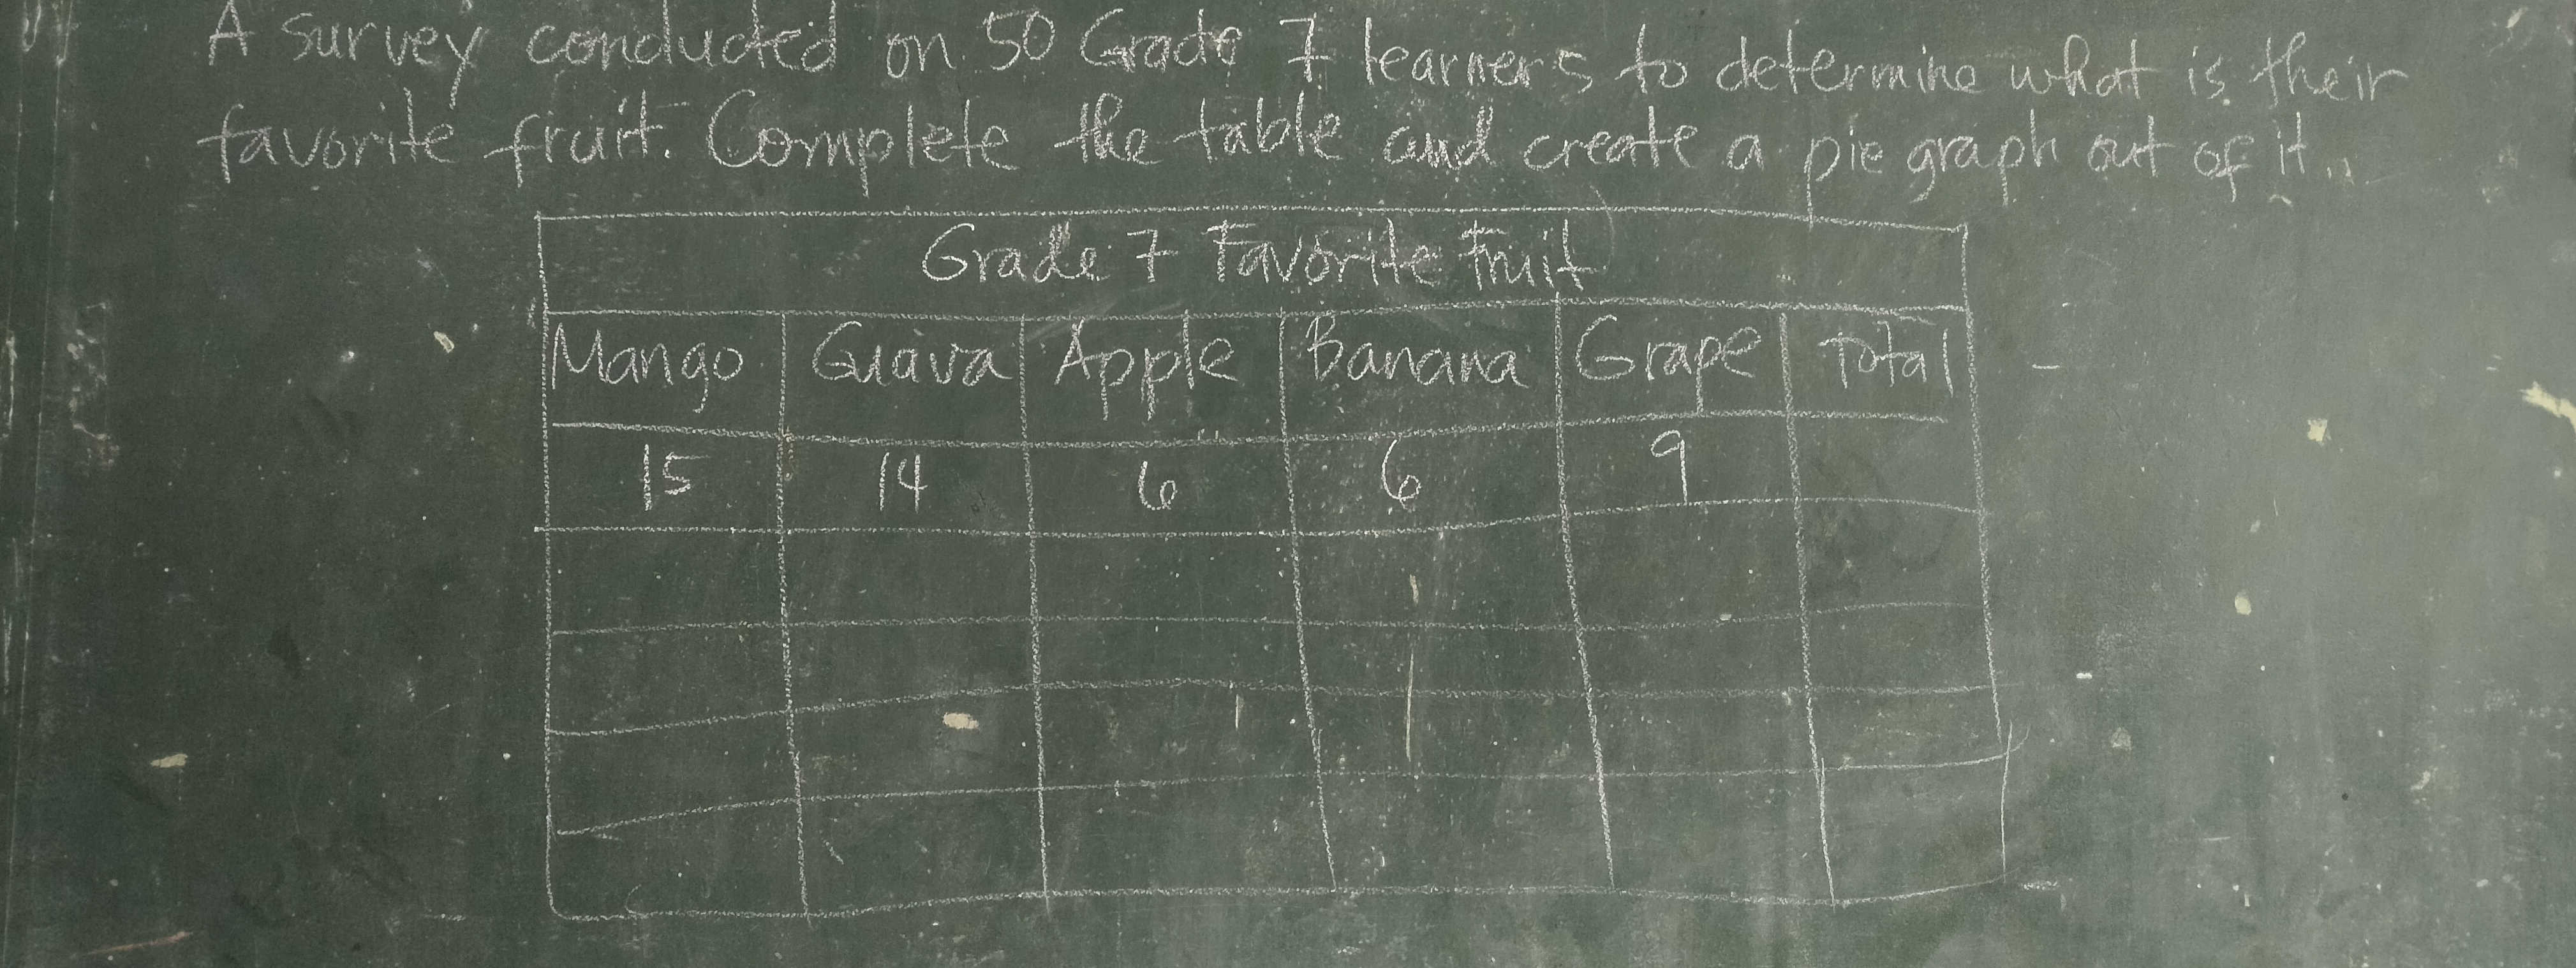 A survey conducted on 50 Grade 7 learners to determine what is their
favorite fruit. Complete the table and create a pie graph out of it.
Grade 7 Favorite Fruit
Mango Guava Apple Banana Grape Total
15 14 6 6 9